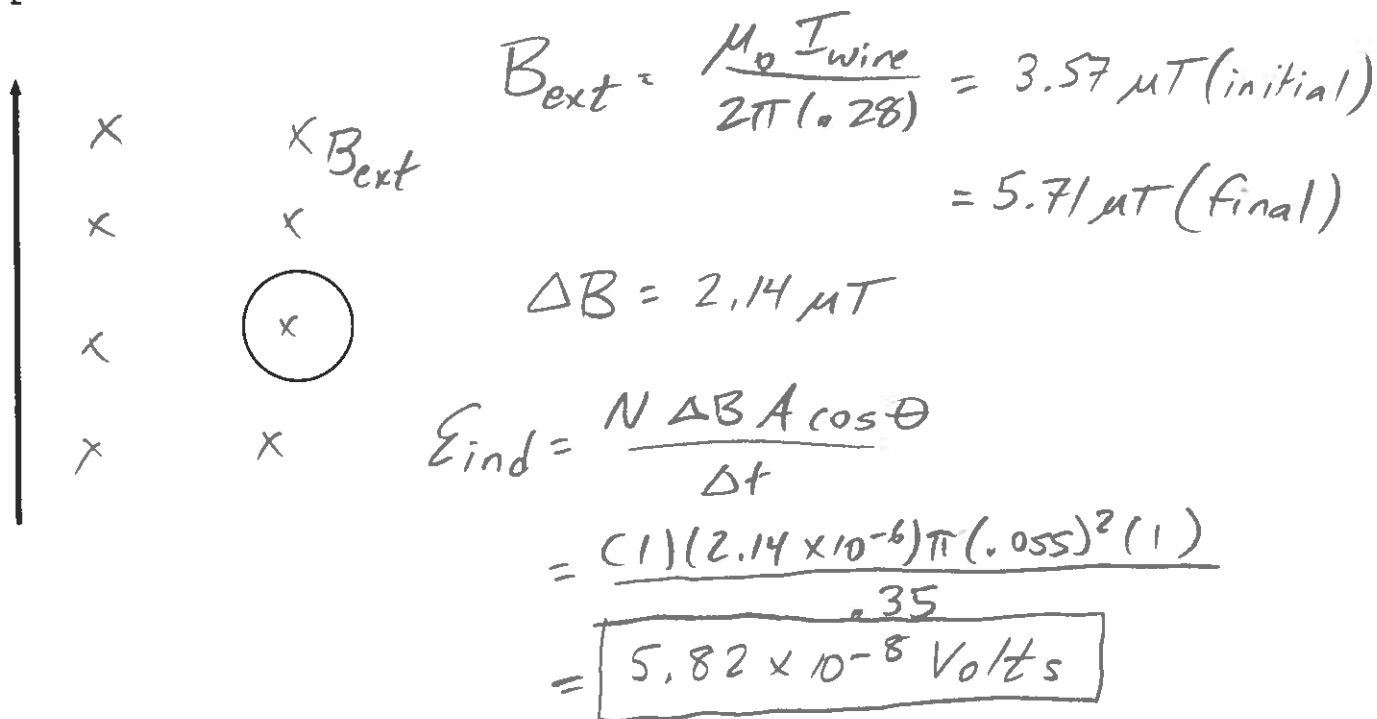 B_ext = μ₀ I_wire / 2π(.28) = 3.57 μT (initial)
= 5.71 μT (final)
x x B_ext
x x
ΔB = 2.14 μT
x x
x x
ℰ_ind = N ΔB A cos θ / Δt
= (1)(2.14 × 10⁻⁶)π(.055)²(1) / .35
= 5.82 × 10⁻⁸ Volts